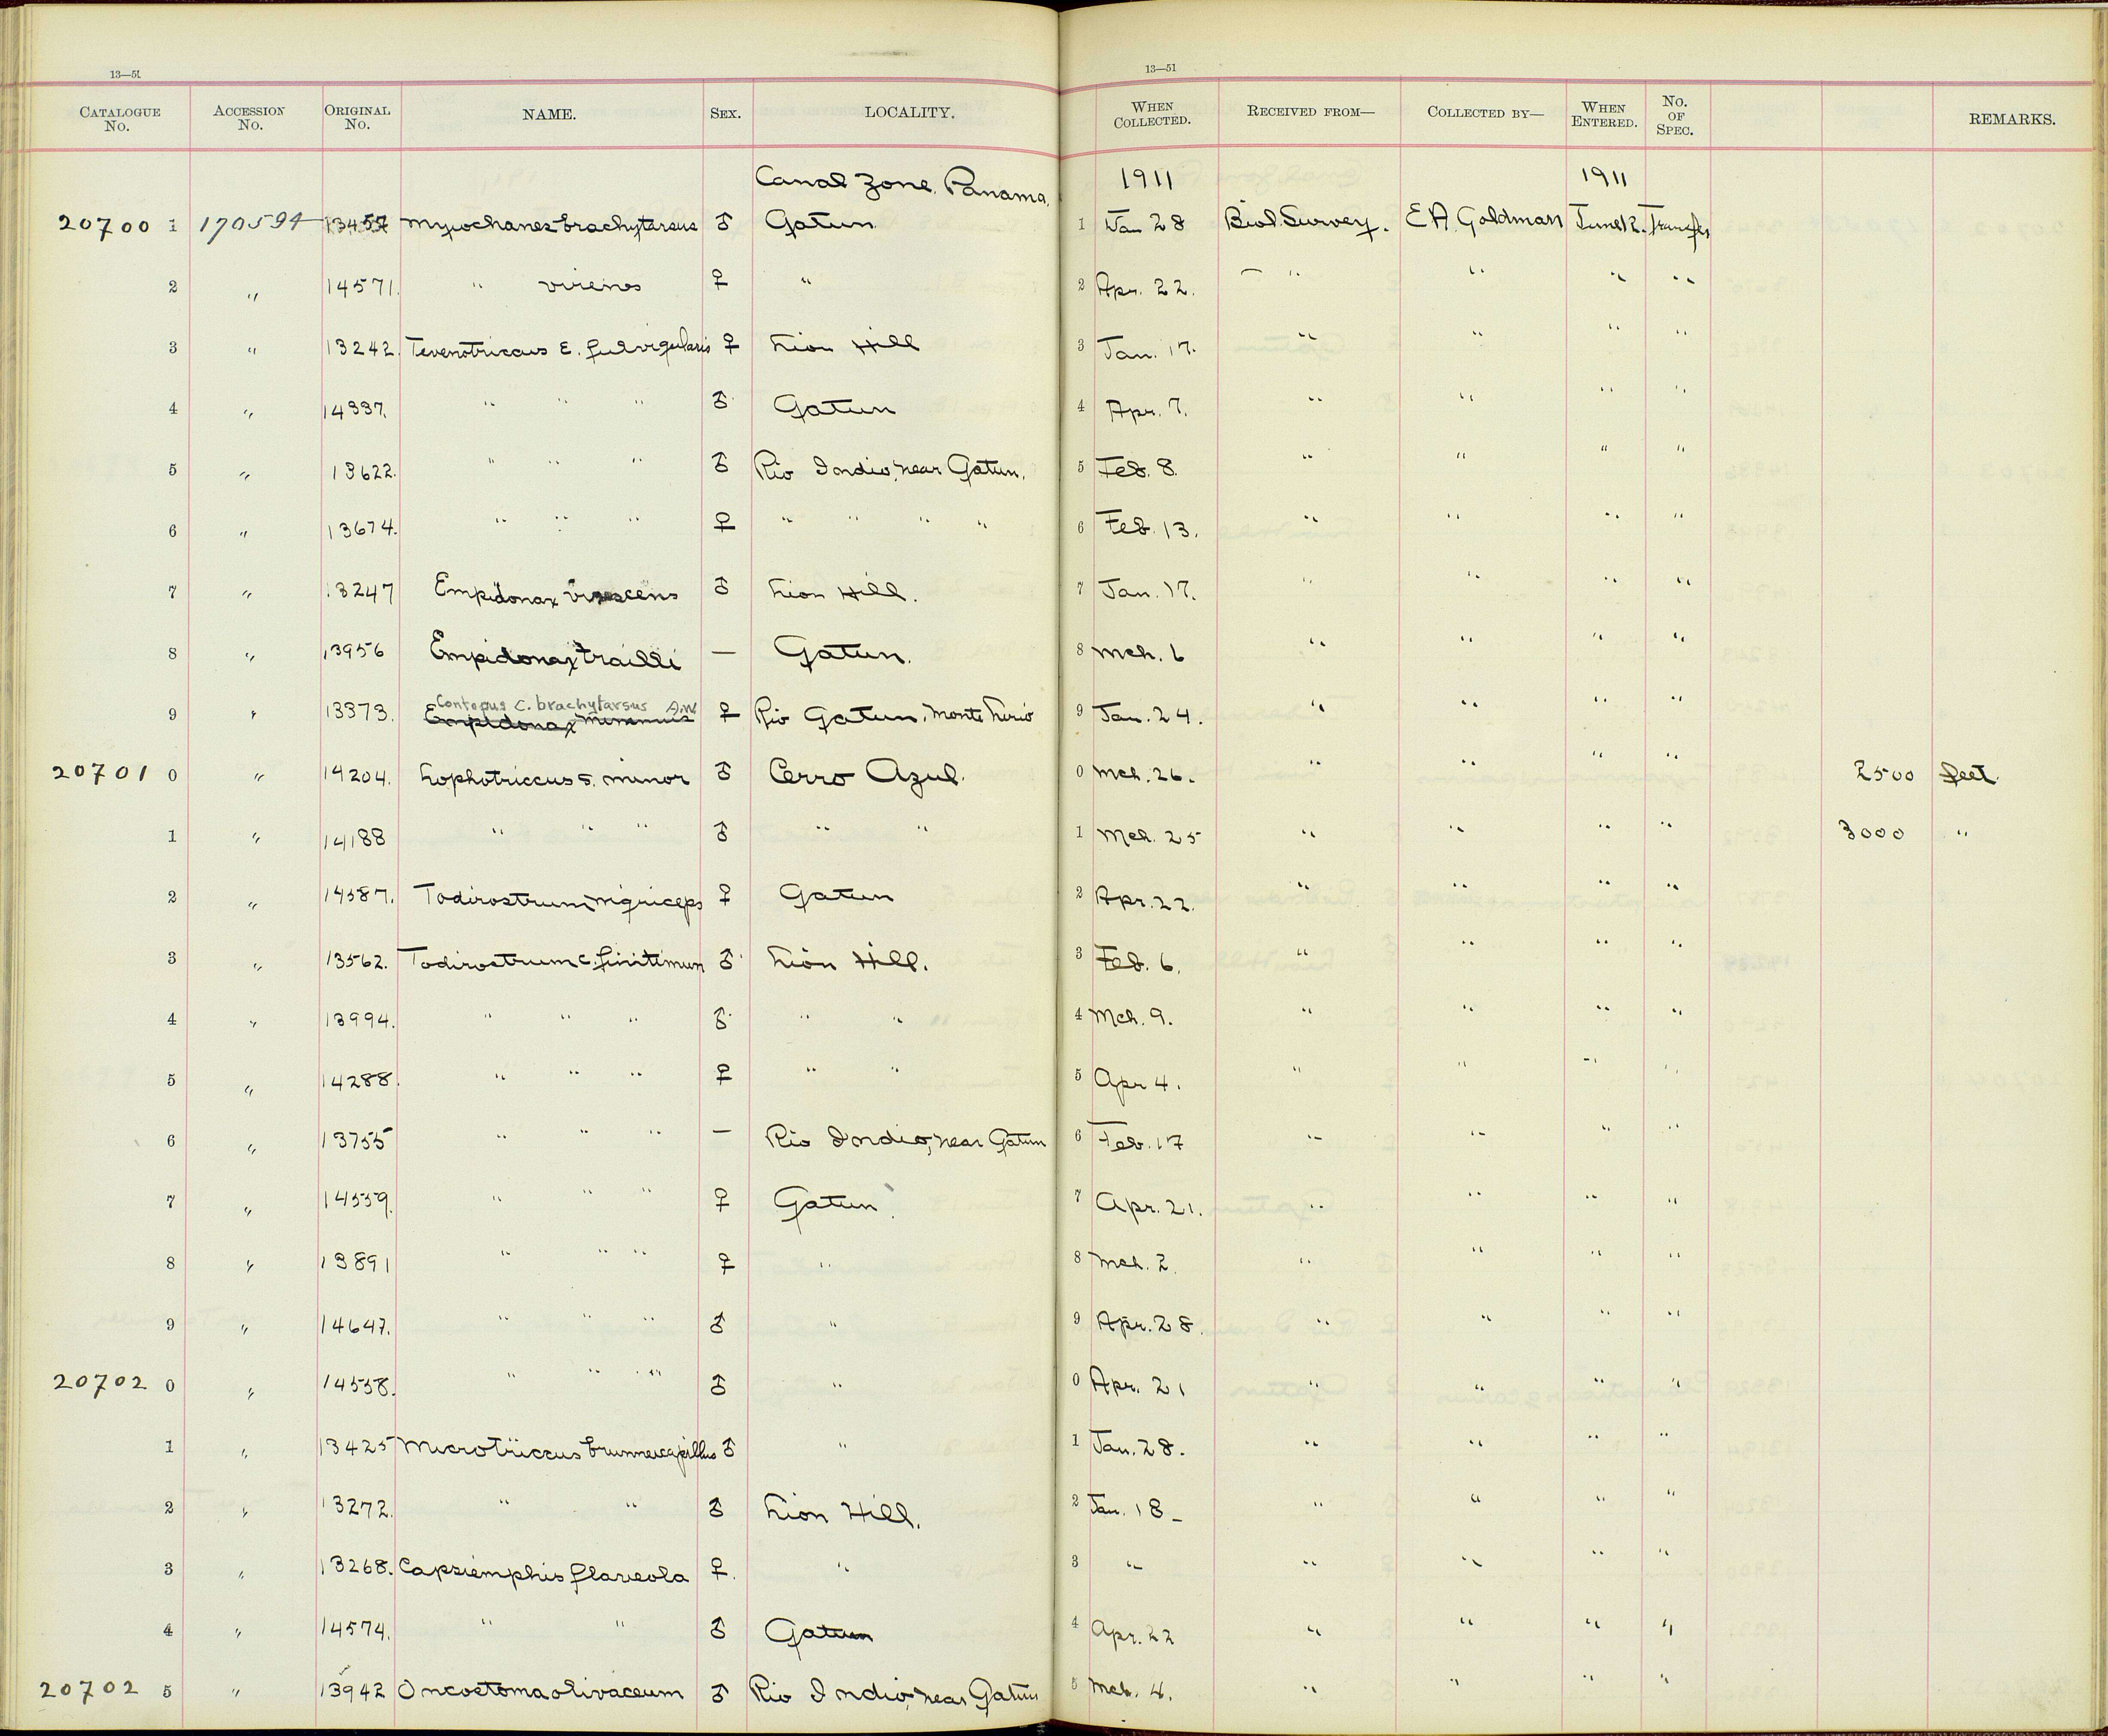 13—51 13—51
CATALOGUE No. ACCESSION No. ORIGINAL No. NAME. SEX. LOCALITY. WHEN COLLECTED. RECEIVED FROM— COLLECTED BY— WHEN ENTERED. No. OF SPEC. REMARKS.
Canal Zone, Panama. 1911 1911
20700 1 170594 13457 Myiochanes brachytarsus ♂ Gatun 1 Jan 28 Biol. Survey. E A. Goldman June 12. Transfer
2 " 14571. " virens ♀ " 2 Apr. 22. " " " "
3 " 13242. Tevenotriccus E. fulvigularis ♀ Lion Hill 3 Jan. 17. " " " "
4 " 14337. " " " ♂ Gatun 4 Apr. 7. " " " "
5 " 13622. " " " ♂ Rio Indio, near Gatun. 5 Feb. 8. " " " "
6 " 13674. " " " ♀ " " " " 6 Feb. 13. " " " "
7 " 13247 Empidonax virescens ♂ Lion Hill. 7 Jan. 17. " " " "
8 " 13956 Empidonax trailli — Gatun. 8 Mch. 6 " " " "
Contopus C. brachytarsus A.W
9 " 13373. Empidonax minimus ♀ Rio Gatun, Monte Lirio 9 Jan. 24. " " " "
20701 0 " 14204. Lophotriccus s. minor ♂ Cerro Azul. 0 Mch. 26. " " " " 2500 feet.
1 " 14188 " " " ♂ " " 1 Mch. 25 " " " " 3000 "
2 " 14587. Todirostrum nigriceps ♀ Gatun 2 Apr. 22. " " " "
3 " 13562. Todirostrum c. finitimum ♂ Lion Hill. 3 Feb. 6. " " " "
4 " 13994. " " " ♂ " " 4 Mch. 9. " " " "
5 " 14288. " " " ♀ " " 5 Apr 4. " " " "
6 " 13755 " " " — Rio Indio, near Gatun 6 Feb. 17 " " " "
7 " 14559. " " " ♀ Gatun 7 Apr. 21. " " " "
8 " 13891 " " " ♀ " 8 Mch. 2. " " " "
9 " 14647. " " " ♂ " 9 Apr. 28. " " " "
20702 0 " 14558. " " " ♂ " 0 Apr. 21 " " " "
1 " 13425 Microtriccus brunneicapillus ♂ " 1 Jan. 28. " " " "
2 " 13272. " " ♂ Lion Hill. 2 Jan. 18 " " " "
3 " 13268. Capsiemphis flaveola ♀. " 3 " " " " "
4 " 14574. " " ♂ Gatun 4 Apr. 22 " " " "
20702 5 " 13942 Oncostoma olivaceum ♂ Rio Indio, near Gatun 5 Mch. 4. " " " "